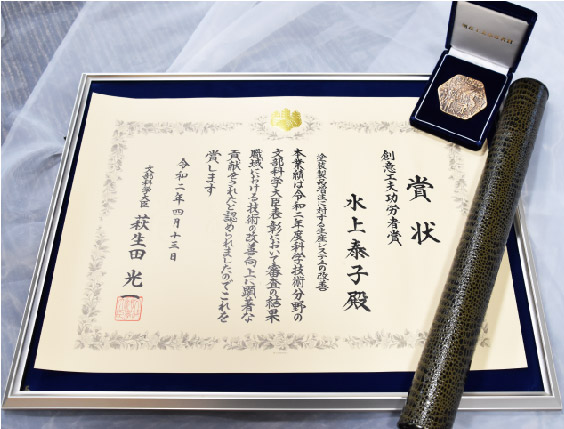 賞状
創意工夫功労者賞
水上泰子殿
本業績は令和二年度科学技術分野の
文部科学大臣表彰において審査の結果
職域における技術の改善向上に顕著な
貢献をされたと認められましたのでこれを
賞します
令和二年四月十三日
文部科学大臣
萩生田光一